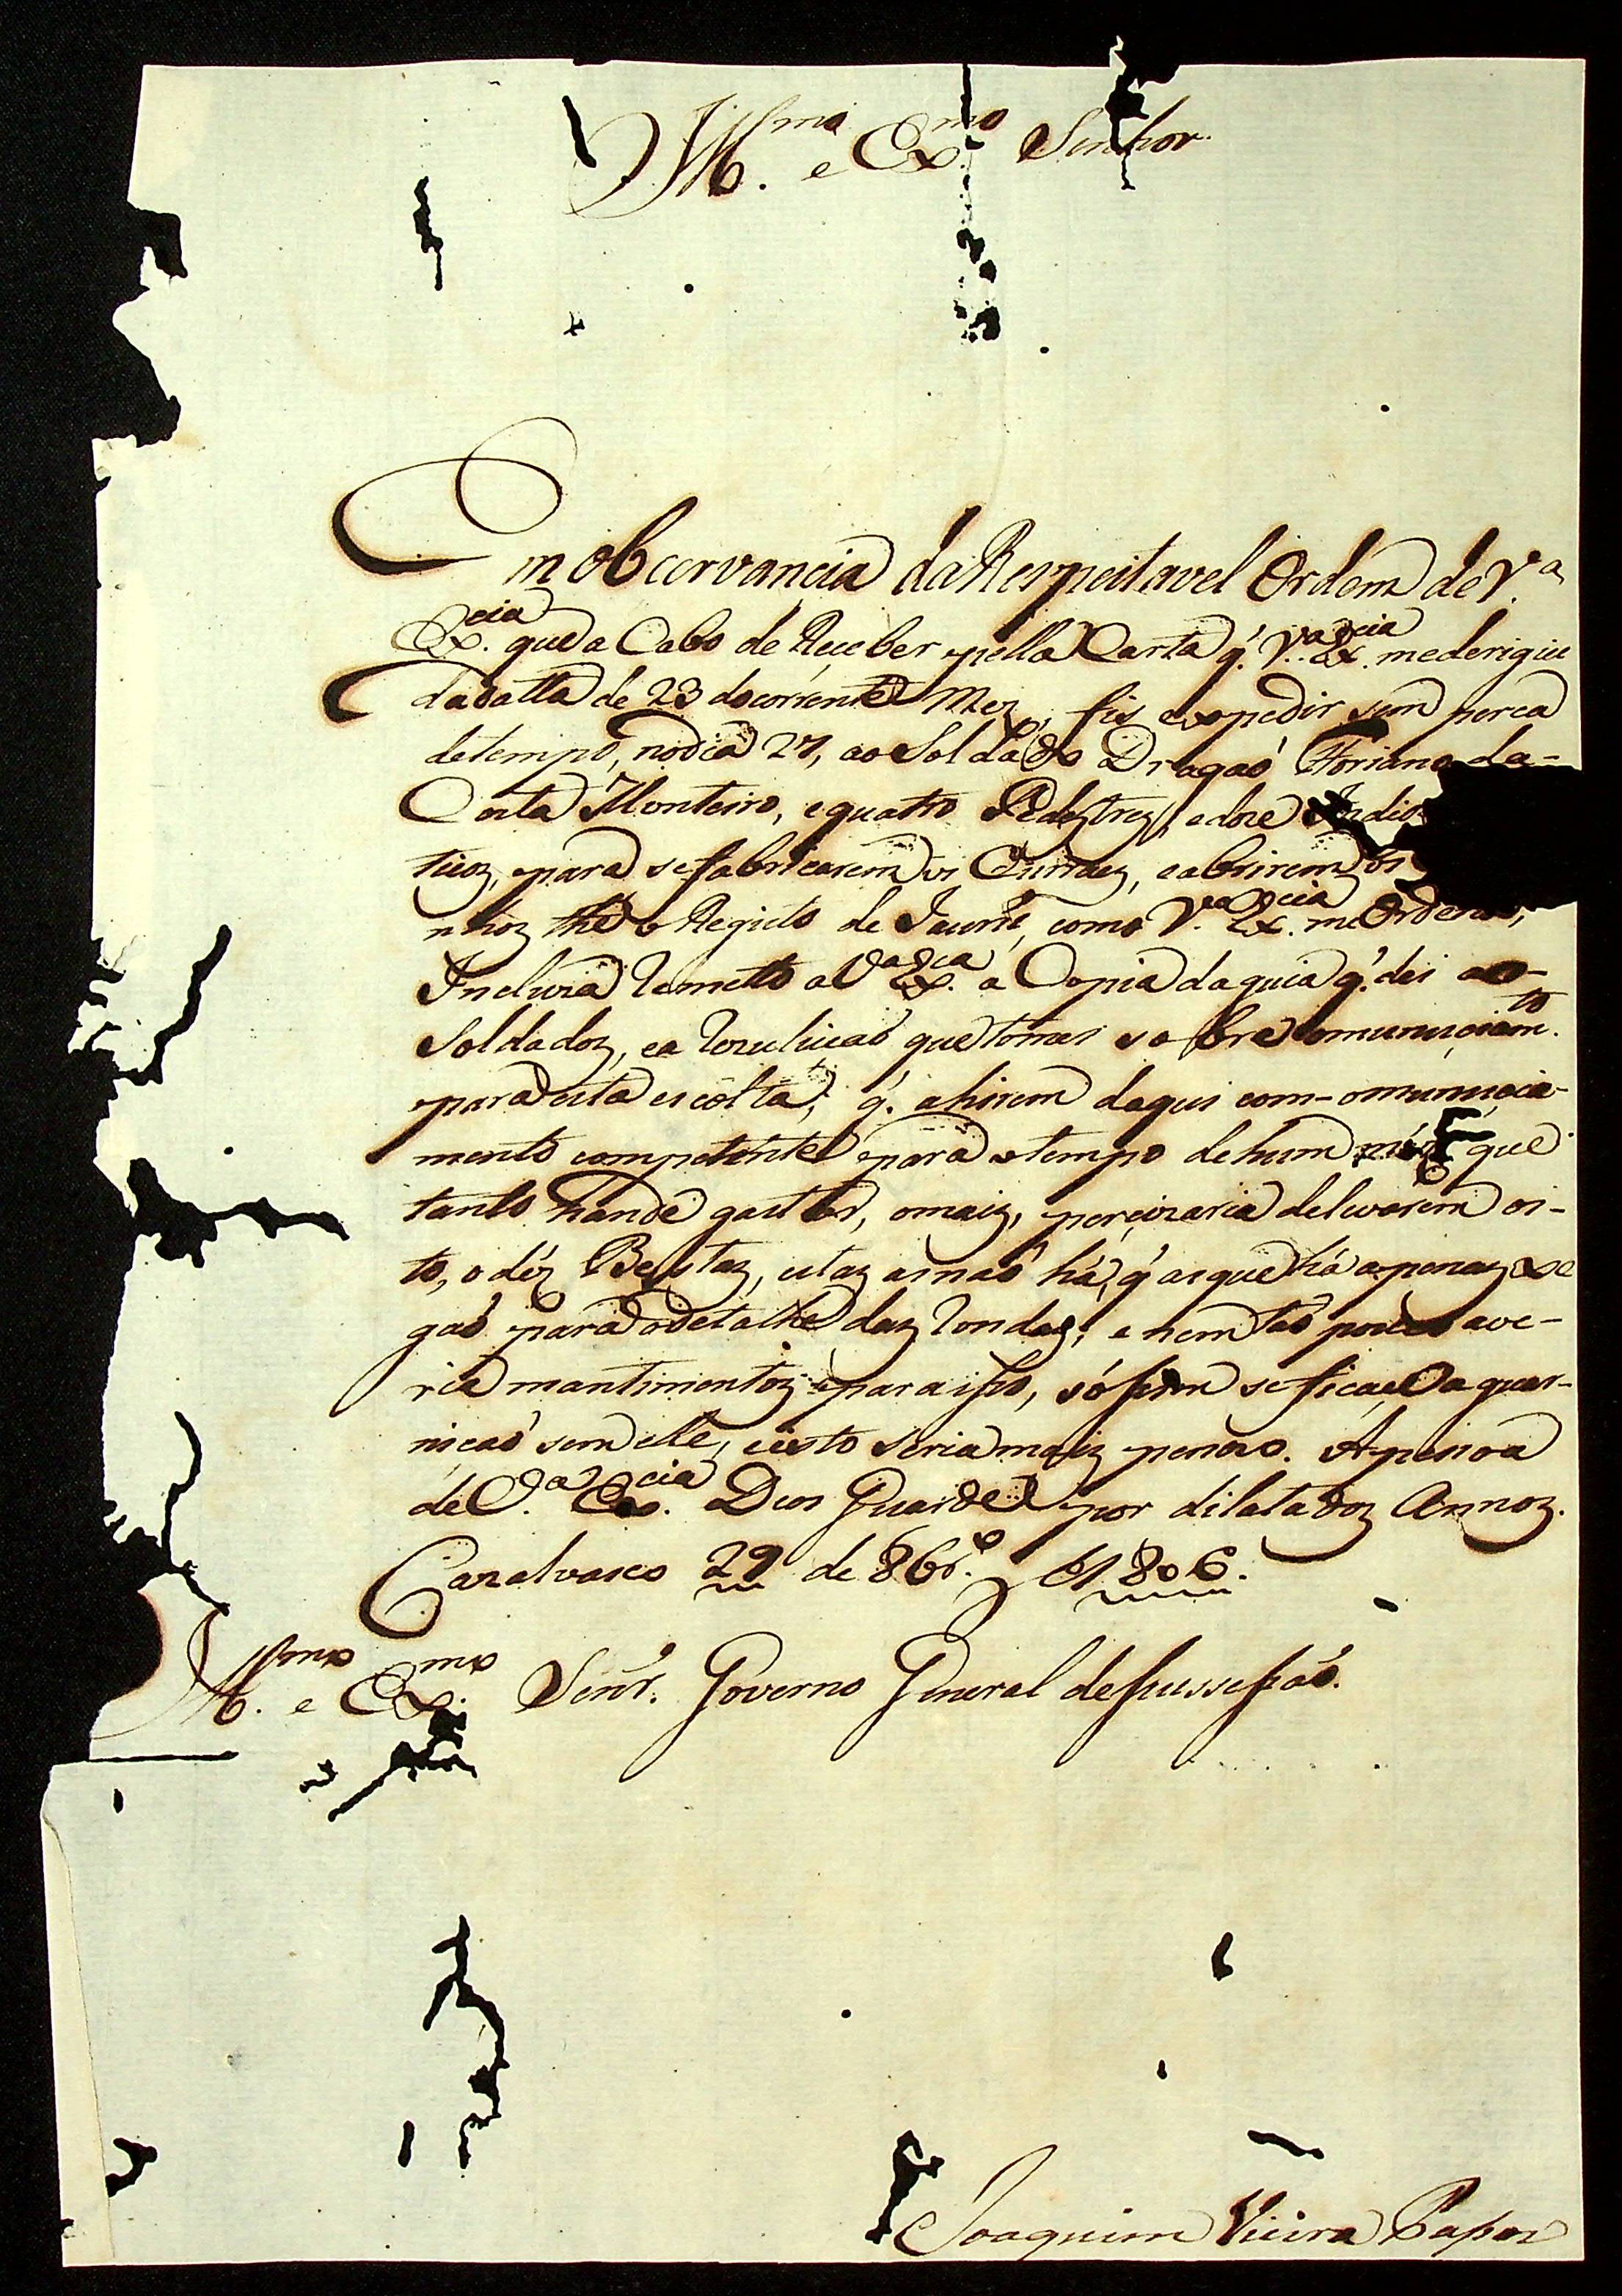 Ill.mo e Ex.mo Senhor
Em obcervancia da Respeitavel Ordem de V.a
Ex.cia que a Cabo de Receber pella Carta q.' V.a Ex.cia mederigiu
dadatta de 23 docorrente Mez, fis expedir sem perca
detempo, nodia 27, ao Soldado Dragaõ Floriano da-
Costa Monteiro, equatro Pedeztrez, edoze Indios
ticoz, para sefabricarem os Curraez, eabrirem os
nhoz thé o Registo de Jaurú, como V.a Ex.cia me Ordena,
Incluza Remetto a V.a Ex.cia a Copia daguia q.' dei ao-
Soldadoz, ea Rezuluçaõ que tomei sobre omuniciam.to
para esta escolta; q.' ahirem daqui com-omunicia-
mento competente para otempo dehum méz que
tanto handé gastar, omaiz, percizaria delevarem oi-
to, o déz Bestaz, estaz asnaõ há, q.' asque há apenaz xe
gaõ para odetalhe daz Rondaz; e nem taõ pouco ave-
ria mantimentoz para isso, sósem se ficace aguar-
niçaõ sem elle, eisto seria maiz penozo. Apesoa
de V.a Ex.cia Deos Guarde por dilatadoz Annoz.
Cazalvasco 29 de 8br.o de 1806.
Ill.mo e Ex.mo Senr. Governo General desussessaõ.
Joaquim Vieira Passos